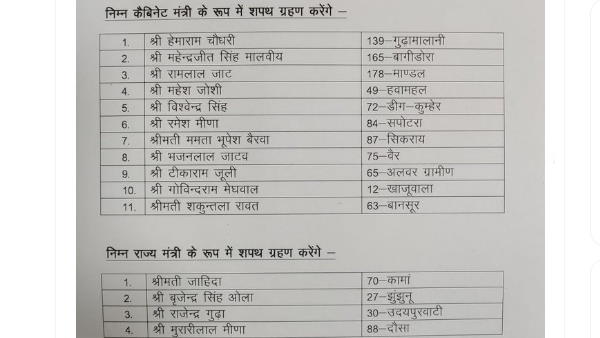 निम्न कैबिनेट मंत्री के रूप में शपथ ग्रहण करेंगे –
1. श्री हेमाराम चौधरी 139–गुढामालानी
2. श्री महेन्द्रजीत सिंह मालवीय 165–बागीडोरा
3. श्री रामलाल जाट 178–माण्डल
4. श्री महेश जोशी 49–हवामहल
5. श्री विश्वेन्द्र सिंह 72–डीग–कुम्हेर
6. श्री रमेश मीणा 84–सपोटरा
7. श्रीमती ममता भूपेश बैरवा 87–सिकराय
8. श्री भजनलाल जाटव 75–वैर
9. श्री टीकाराम जूली 65–अलवर ग्रामीण
10. श्री गोविन्दराम मेघवाल 12–खाजूवाला
11. श्रीमती शकुन्तला रावत 63–बानसूर
निम्न राज्य मंत्री के रूप में शपथ ग्रहण करेंगे –
1. श्रीमती जाहिदा 70–कामां
2. श्री बृजेन्द्र सिंह ओला 27–झुंझुनू
3. श्री राजेन्द्र गुढा 30–उदयपुरवाटी
4. श्री मुरारीलाल मीणा 88–दौसा